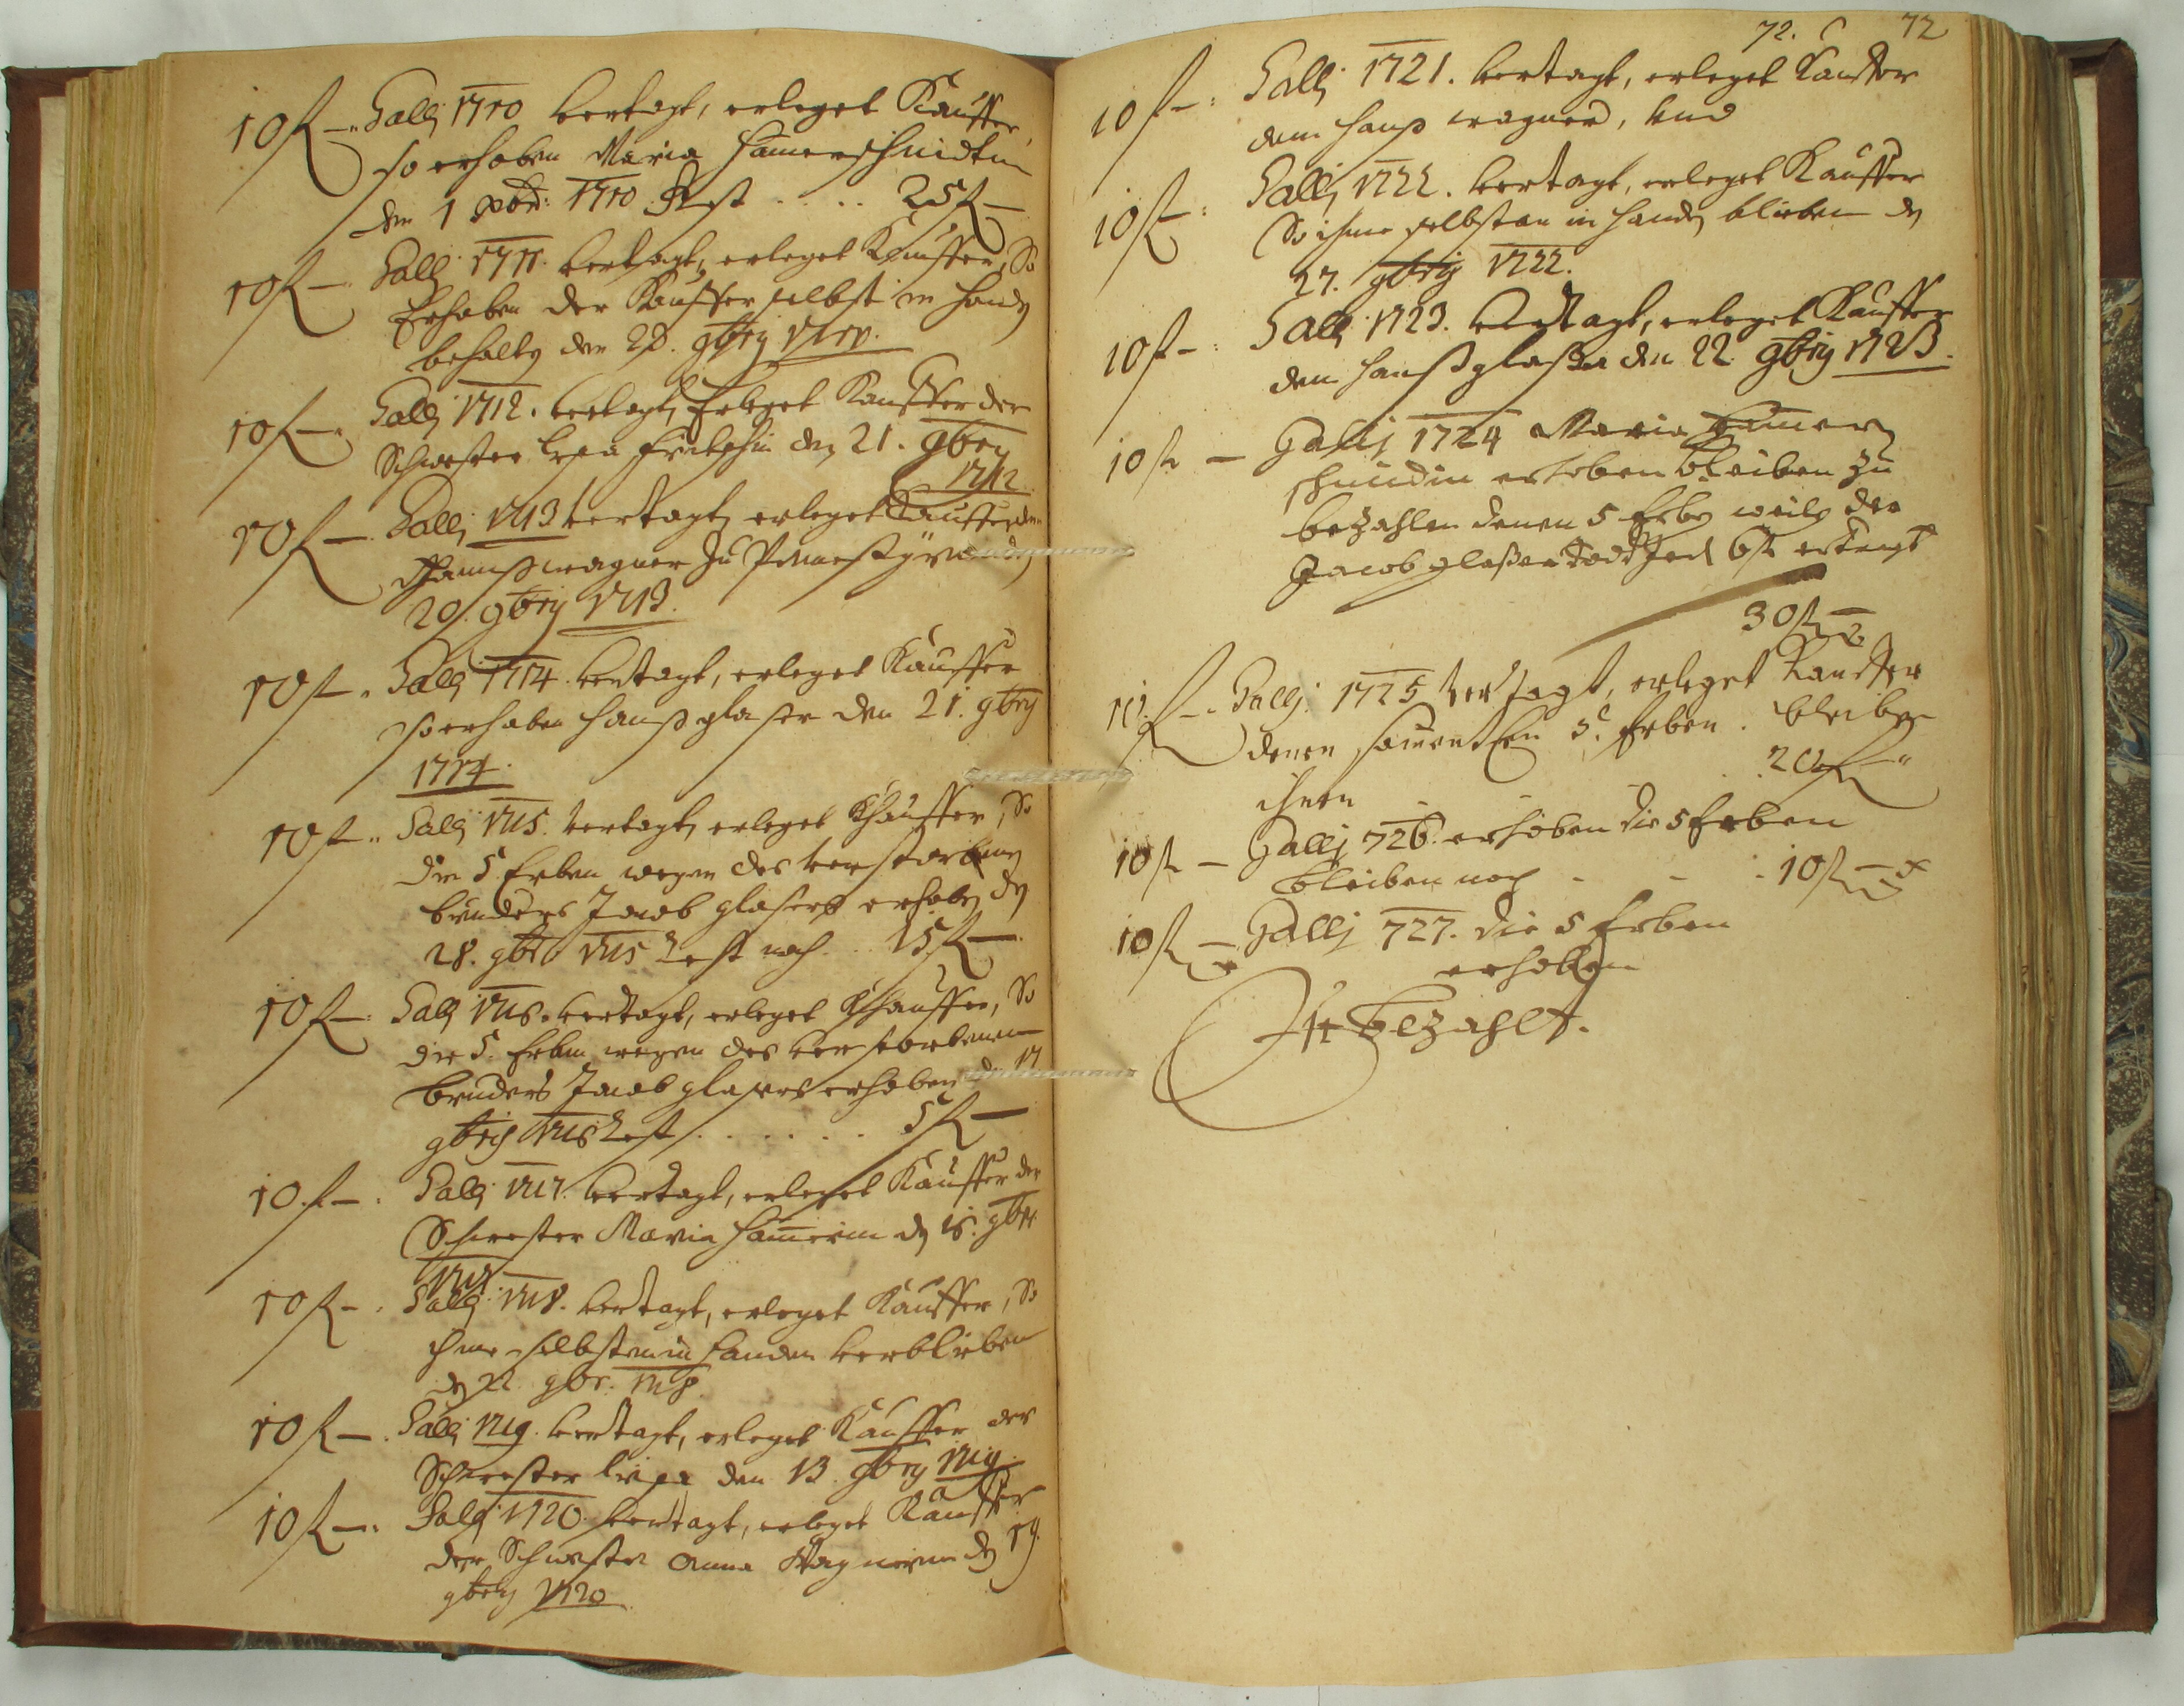 10 fl — Galli 1710 vertagt, erleget Kauffer
so erhoben Maria Hamerschmidtin
den 1 xbr: 1710. Rest . . . . 25 fl —
10 fl — Galli 1711. vertagt, erleget Kauffer, So
Erhoben der Kauffer selbst in Handen
behalten den 9brij
10 fl — Galli 1712. vertagt, Erleget Kauffer der
Schwester den 21. 9brij
1712
10 fl — Galli 1713 vertagt, erleget Kauffer dem
Hannß wagner zu den
20. 9brij 1713.
10 fl — Galli 1714. vertagt, erleget Kauffer
so erhoben Hanß glaser den 21. 9brij
1714.
10 fl — Galli 1715. vertagt, erleget Khauffer, So
die 5 Erben wegen des verstorbenen
bruders Jacob glasers erhoben den
28. 9br 1715 Rest noch . . 15 fl —
10 fl — Galli 1716. vertagt, erleget Khauffer, So
die 5. Erben wegen des verstorbenen
bruders Jacob glasers erhoben den 17
9bris 1716 Rest . . . . . . 5 fl —
10 fl — Galli 1717. vertagt, erleget Kauffer der
Schwester Maria den 9br.
1717
10 fl — Galli 1718. vertagt, erleget Kauffer, So
ihme selbsten in Handen verblieben
den 9br. 1718.
10 fl — Galli 1719. vertagt, erleget Kauffer der
Schwester den 13. 9brij 1719.
10 fl — Galli 1720. vertagt, erleget Kauffer
der Schwester Anna Wagnerin den 19.
9brij 1720
72. 72
10 fl — Galli 1721. vertagt, erleget Kauffer
dem Hanß wagner, und
10 fl — Galli 1722. vertagt, erleget Kauffer
So ihme selbsten in Handen blieben den
27. 9brij 1722.
10 fl — Galli 1723. vertagt, erleget Kauffer
dem Hanß glaser den 22. 9brij 1723.
10 fl — Gallij 1724 Maria Hamer
schmidin erhoben bleiben zu
bezahlen denen 5 Erben weilen der
Jacob glaser todt
30 fl —
10 fl — Gallj. 1725 vertagt, erleget Kauffer
denen 5. Erben. bleiben
ihnen . 20 fl —
10 fl — Gallj 726. erhoben die 5 Erben
bleiben noch - - . 10 fl —
10 fl — Gallj 727. die 5 Erben
erhoben
Ist bezahlt.